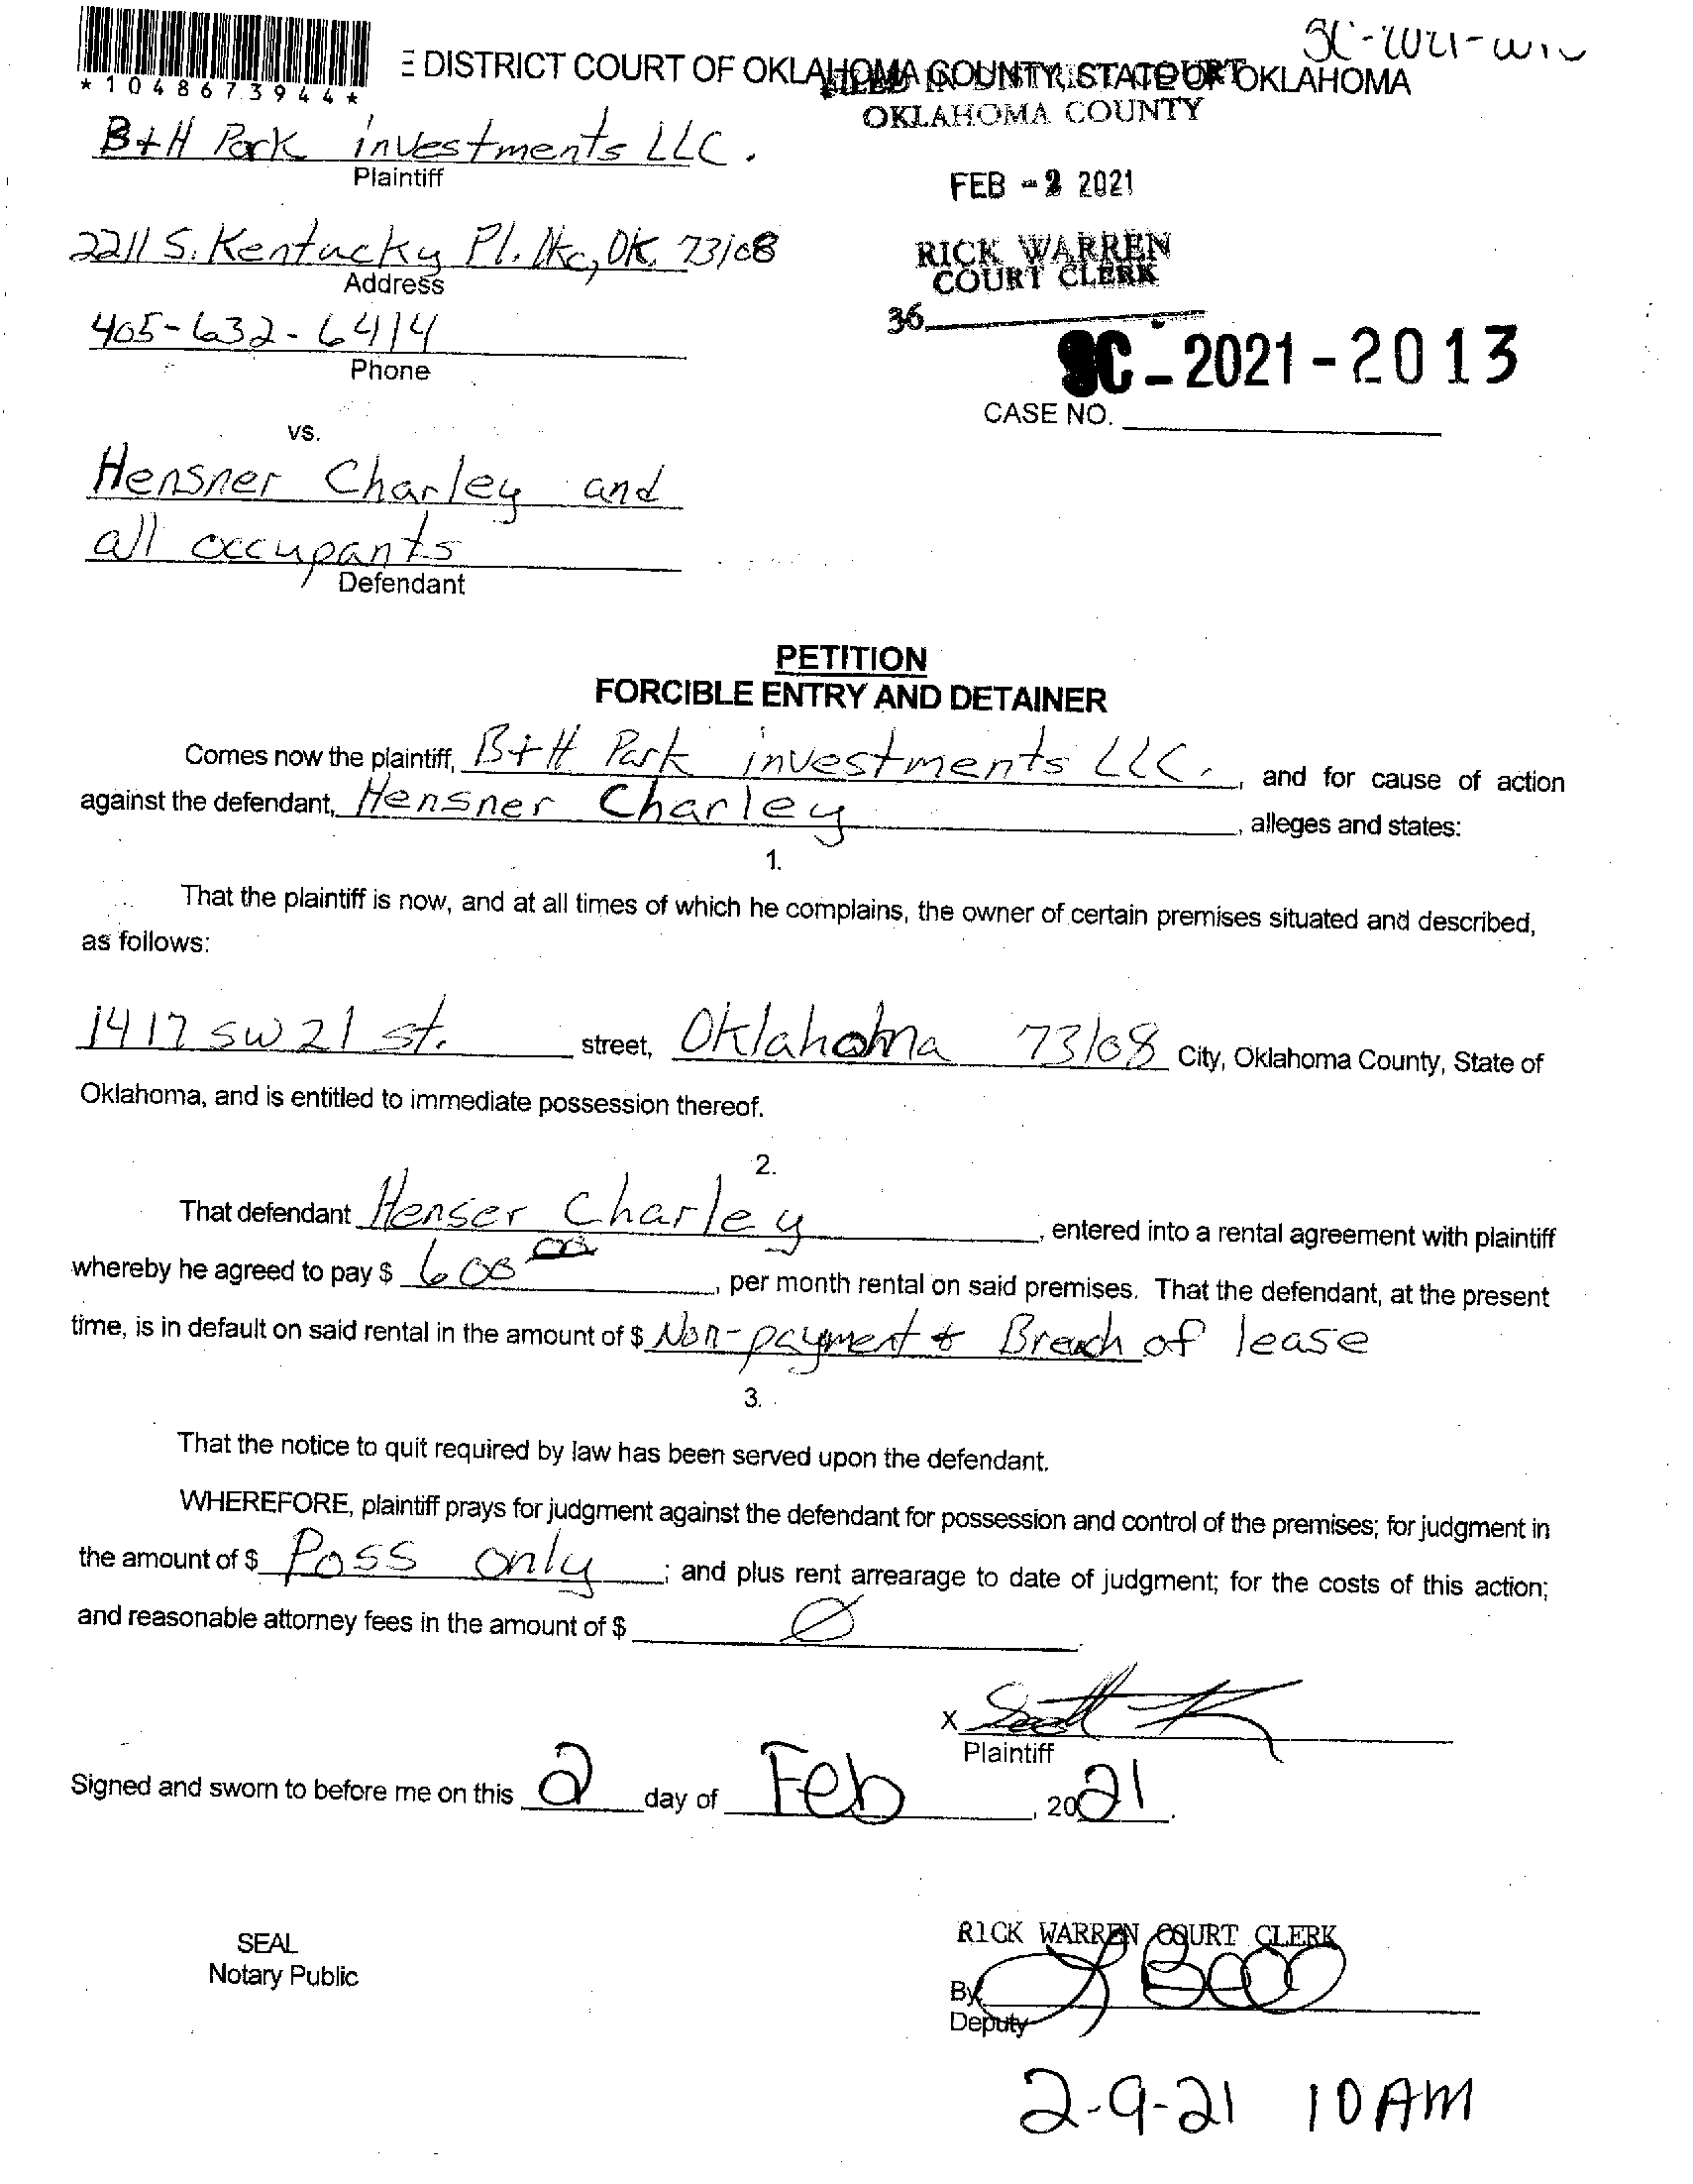 *1048673944*
E DISTRICT COURT OF OKLAHOMA COUNTY, STATE OF OKLAHOMA
FILED IN DISTRICT COURT
OKLAHOMA COUNTY
B+H Park investments LLC.
Plaintiff
FEB -2 2021
2211 S. Kentucky Pl. Okc, OK 73108
Address
RICK WARREN
COURT CLERK
405-632-6414
Phone
36
SC-2021-2013
CASE NO.
vs.
Hensner Charley and
all occupants
Defendant
PETITION
FORCIBLE ENTRY AND DETAINER
Comes now the plaintiff, B+H Park investments LLC., and for cause of action
against the defendant, Hensner Charley, alleges and states:
1.
That the plaintiff is now, and at all times of which he complains, the owner of certain premises situated and described,
as follows:
1417 SW 21 st. street, Oklahoma 73108 City, Oklahoma County, State of
Oklahoma, and is entitled to immediate possession thereof.
2.
That defendant Henser Charley, entered into a rental agreement with plaintiff
whereby he agreed to pay $ 600 00, per month rental on said premises. That the defendant, at the present
time, is in default on said rental in the amount of $ Non-payment + Breach of lease
3.
That the notice to quit required by law has been served upon the defendant.
WHEREFORE, plaintiff prays for judgment against the defendant for possession and control of the premises; for judgment in
the amount of $ Poss only; and plus rent arrearage to date of judgment; for the costs of this action;
and reasonable attorney fees in the amount of $ Ø
X
Plaintiff
Signed and sworn to before me on this 2 day of Feb, 2021.
SEAL
Notary Public
RICK WARREN COURT CLERK
By
Deputy
2-9-21 10AM